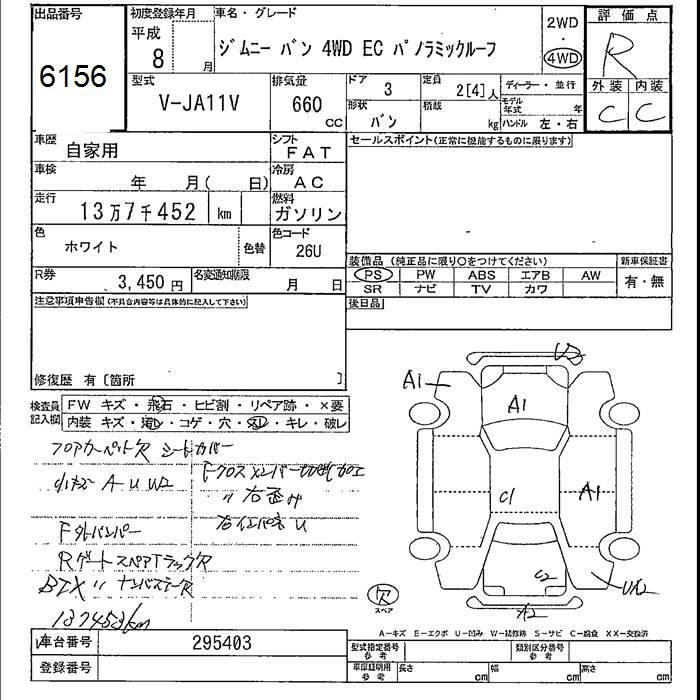 出品番号
6156
初度登録年月
平成
8
月
車名・グレード
ジムニー バン 4WD EC パノラミックルーフ
2WD
・
4WD
評価点
R
外装
内装
C
C
型式
V-JA11V
排気量
660
CC
ドア
3
形状
バン
定員
2[4]人
積載
kg
ディーラー・並行
モデル年式
年
ハンドル 左・右
車歴
自家用
シフト
FAT
車検
年 月( 日)
冷房
AC
走行
13万7千452
km
燃料
ガソリン
色
ホワイト
色替
色コード
26U
R券
3,450 円
名変通知期限
月 日
セールスポイント(正常に機能するものに限ります)
装備品 (純正品に限り○をつけてください)
新車保証書
PS PW ABS エアB AW
有・無
SR ナビ TV カワ
後日品
注意事項申告欄 (不具合内容等は具体的に記入して下さい)
修復歴 有〔箇所 〕
検査員
記入欄
FW キズ・飛石・ヒビ割・リペア跡・×要
内装 キズ・汚レ・コゲ・穴・スレ・キレ・破レ
フロアカーペット欠 シートカバー
小キズ A U W2
Fクロスメンバー切断加工
〃 右歪み
F外バンパー
右インパネ U
Rゲートスペアラック欠
BTX 〃 ナンバステー欠
137453km
U2
A1
A1
C1
A1
C2
UA2
A2
欠
スペア
A-キズ E-エクボ U-凹み W-補修跡 S-サビ C-腐食 XX-交換済
車台番号
295403
登録番号
型式指定番号
参考
類別区分番号
参考
車庫証明用
参考
長さ
cm
幅
cm
高さ
cm